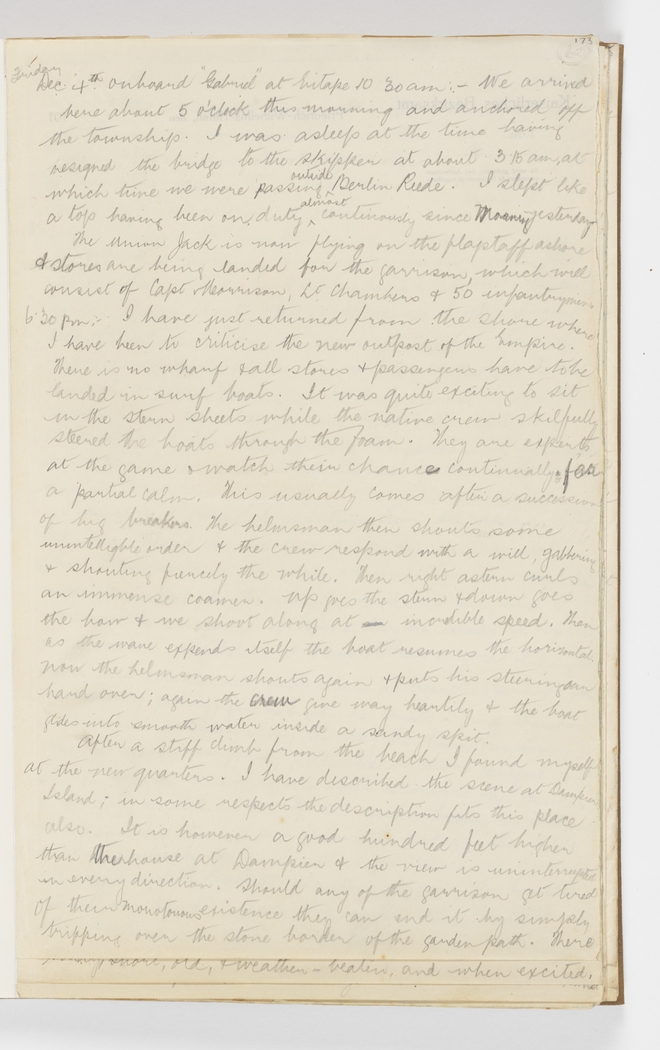 173
Friday
Dec 4th onboard "Gabriel" at Eitape 10 30am :- We arrived
here about 5 o'clock this morning and anchored off
the township. I was asleep at the time having
resigned the bridge to the skipper at about 3 15 am, at
which time we were passing outside Berlin Reede. I slept like
a top having been on duty almost continuously since Monday yesterday
The Union Jack is now flying on the flagstaff ashore
& stores are being landed for the garrison, which will
consist of Capt Morrison, Lt Chambers & 50 infantrymen.
6 30 pm :- I have just returned from the shore where
I have been to criticise the new outpost of the Empire.
There is no wharf & all stores & passengers have to be
landed in surf boats. It was quite exciting to sit
in the stern sheets while the native crew skilfully
steered the boats through the foam. They are experts
at the game & watch their chance continually for
a partial calm. This usually comes after a succession
of big breakers. The helmsman then shouts some
unintelligible order & the crew respond with a will, gabbering
& shouting fiercely the while. Then right astern curls
an immense coamer. Up goes the stern & down goes
the bow & we shoot along at incredible speed. Then
as the wave expends itself the boat resumes the horizontal.
Now the helmsman shouts again & puts his steering oar
hard over; again the crew give way heartily & the boat
glides into smooth water inside a sandy spit.
After a stiff climb from the beach I found myself
at the new quarters. I have described the scene at Dampier
Island; in some respects the description fits this place
also. It is however a good hundred feet higher
than the house at Dampier & the view is uninterrupted
in every direction. Should any of the garrison get tired
of their monotonous existence they can end it by simply
tripping over the stone border of the garden path. There
shore, old, & weather-beaten, and when excited,